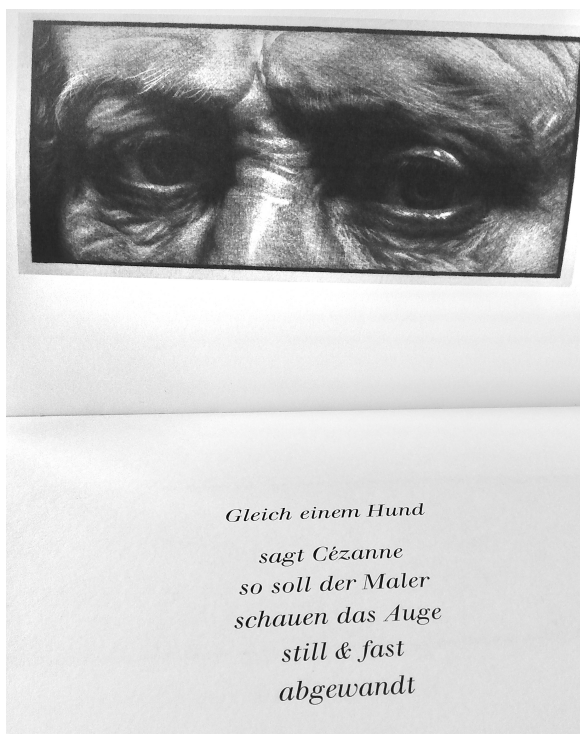 Gleich einem Hund
sagt Cézanne
so soll der Maler
schauen das Auge
still & fast
abgewandt